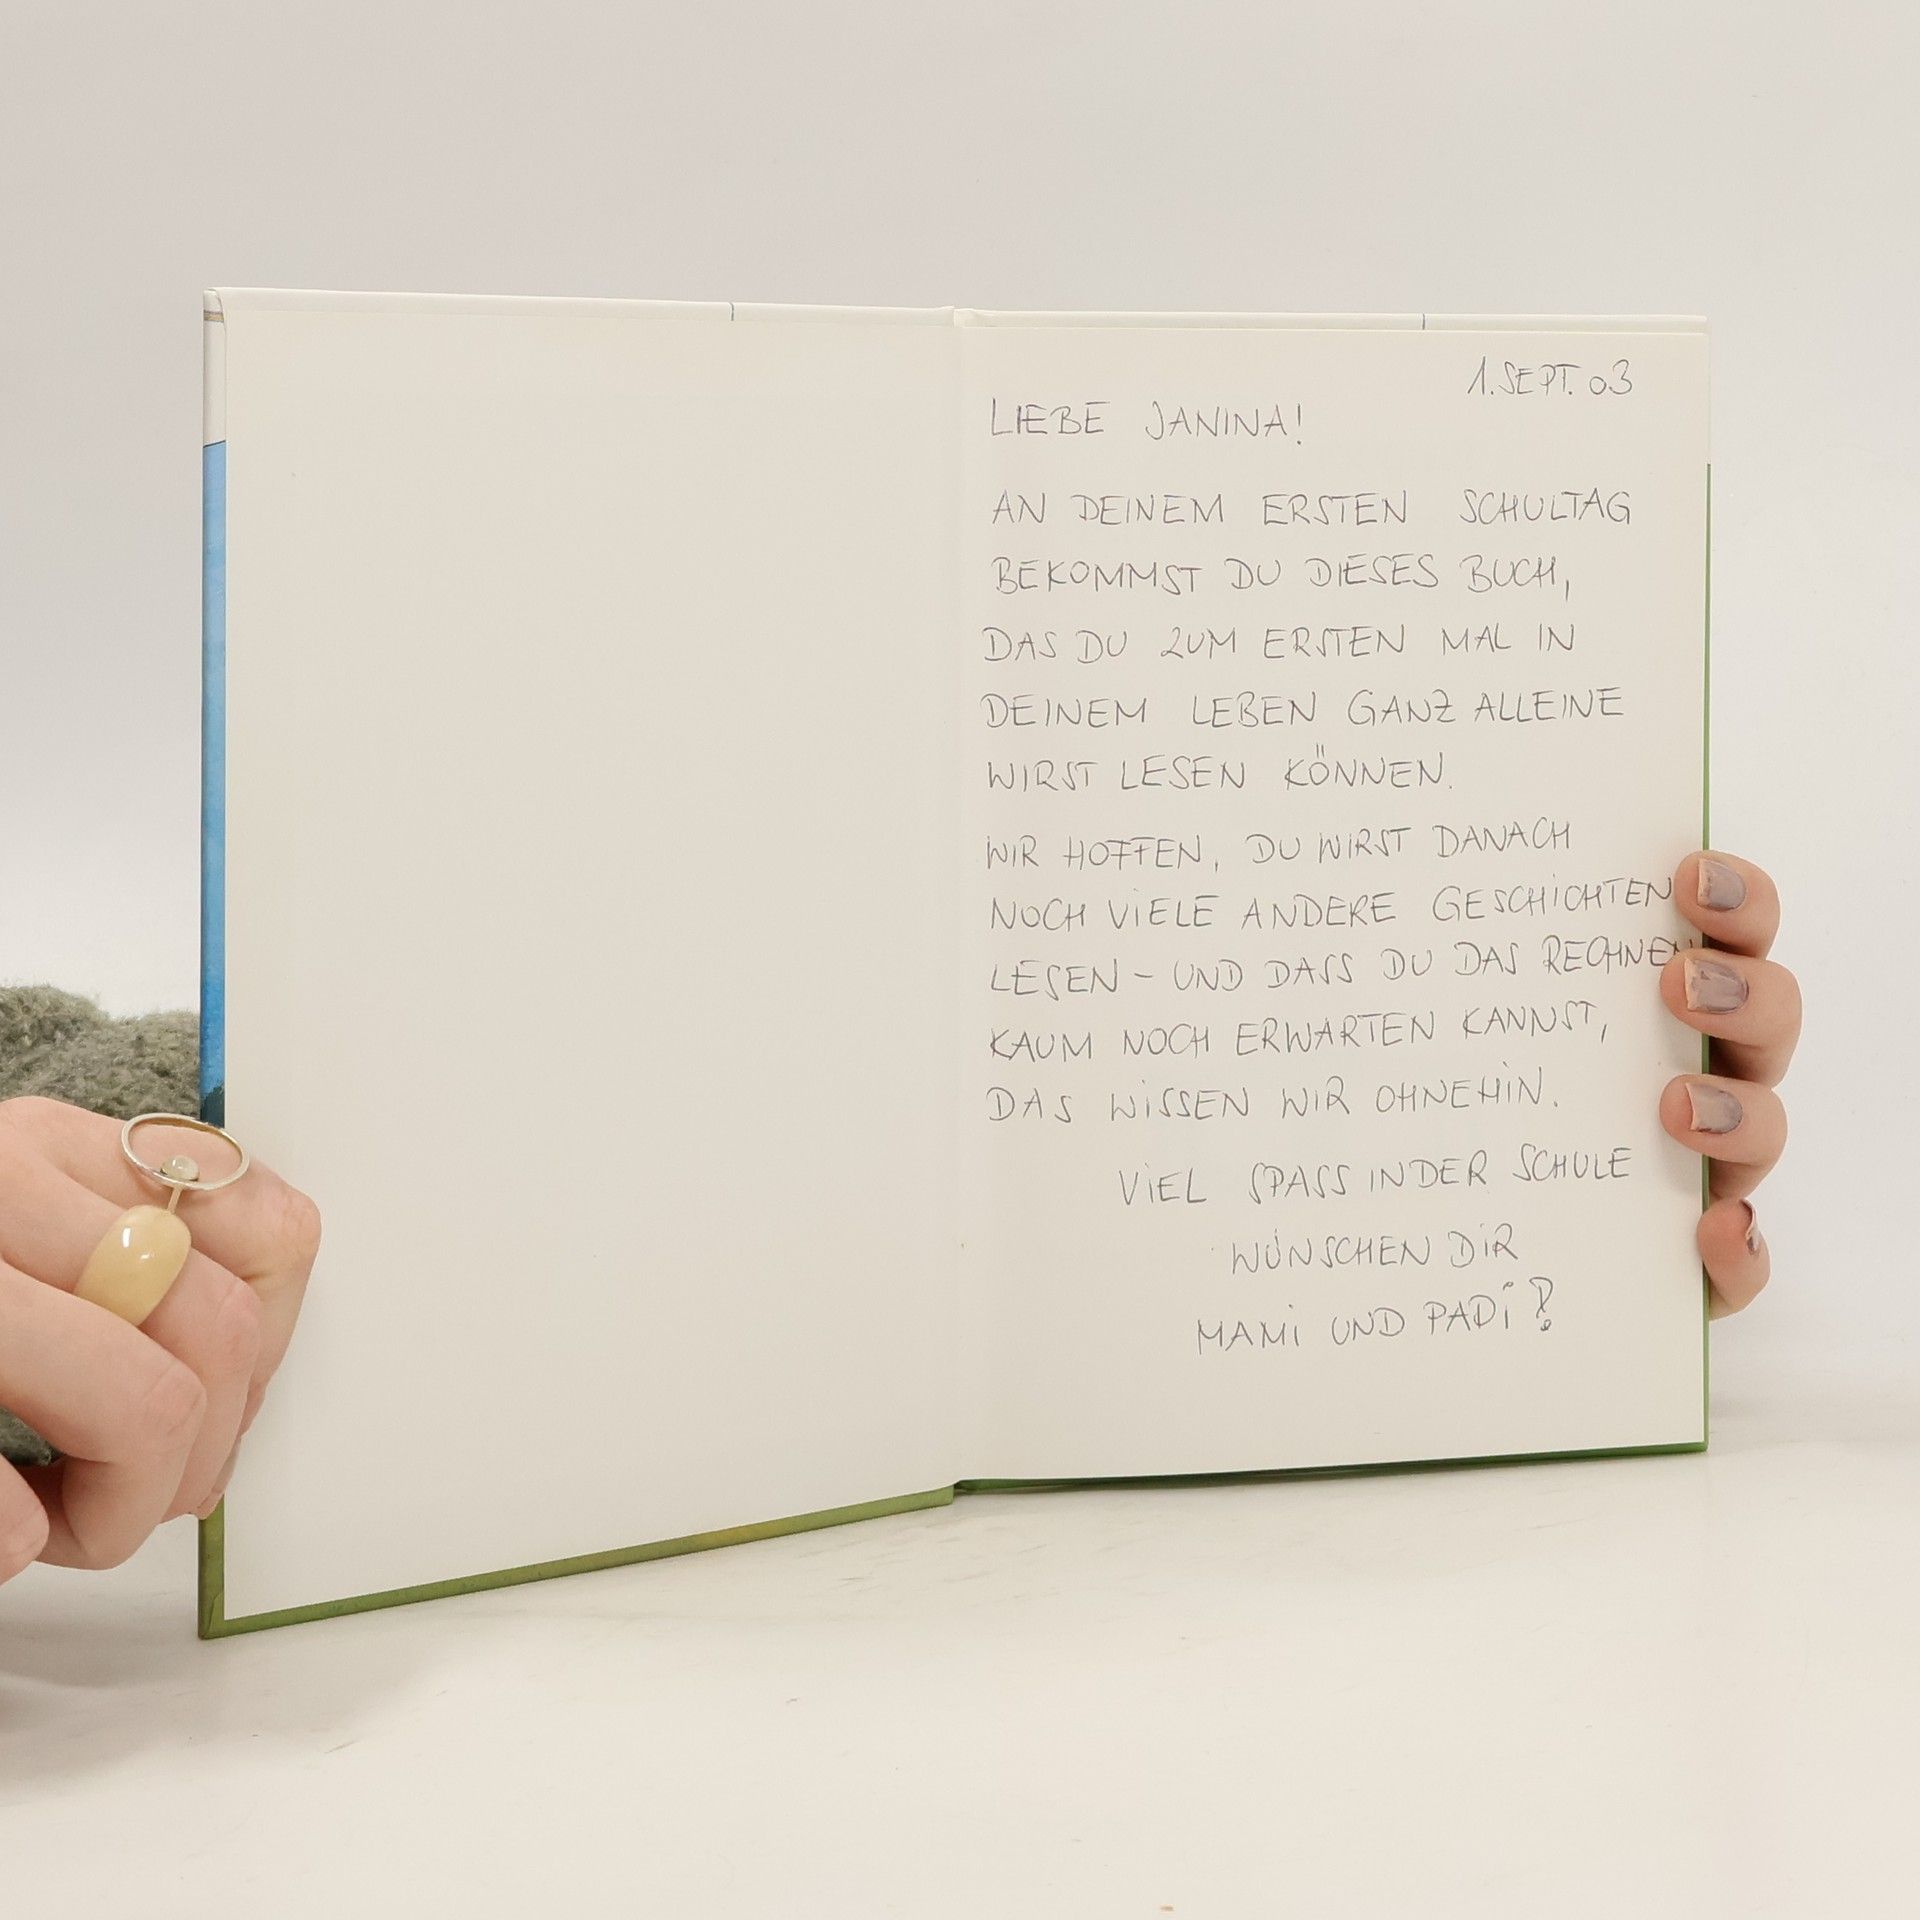 1. SEPT. 03
LIEBE JANINA!
AN DEINEM ERSTEN SCHULTAG
BEKOMMST DU DIESES BUCH,
DAS DU ZUM ERSTEN MAL IN
DEINEM LEBEN GANZ ALLEINE
WIRST LESEN KÖNNEN.
WIR HOFFEN, DU WIRST DANACH
NOCH VIELE ANDERE GESCHICHTEN
LESEN - UND DASS DU DAS RECHNEN
KAUM NOCH ERWARTEN KANNST,
DAS WISSEN WIR OHNEHIN.
VIEL SPASS IN DER SCHULE
WÜNSCHEN DIR
MAMI UND PADI!